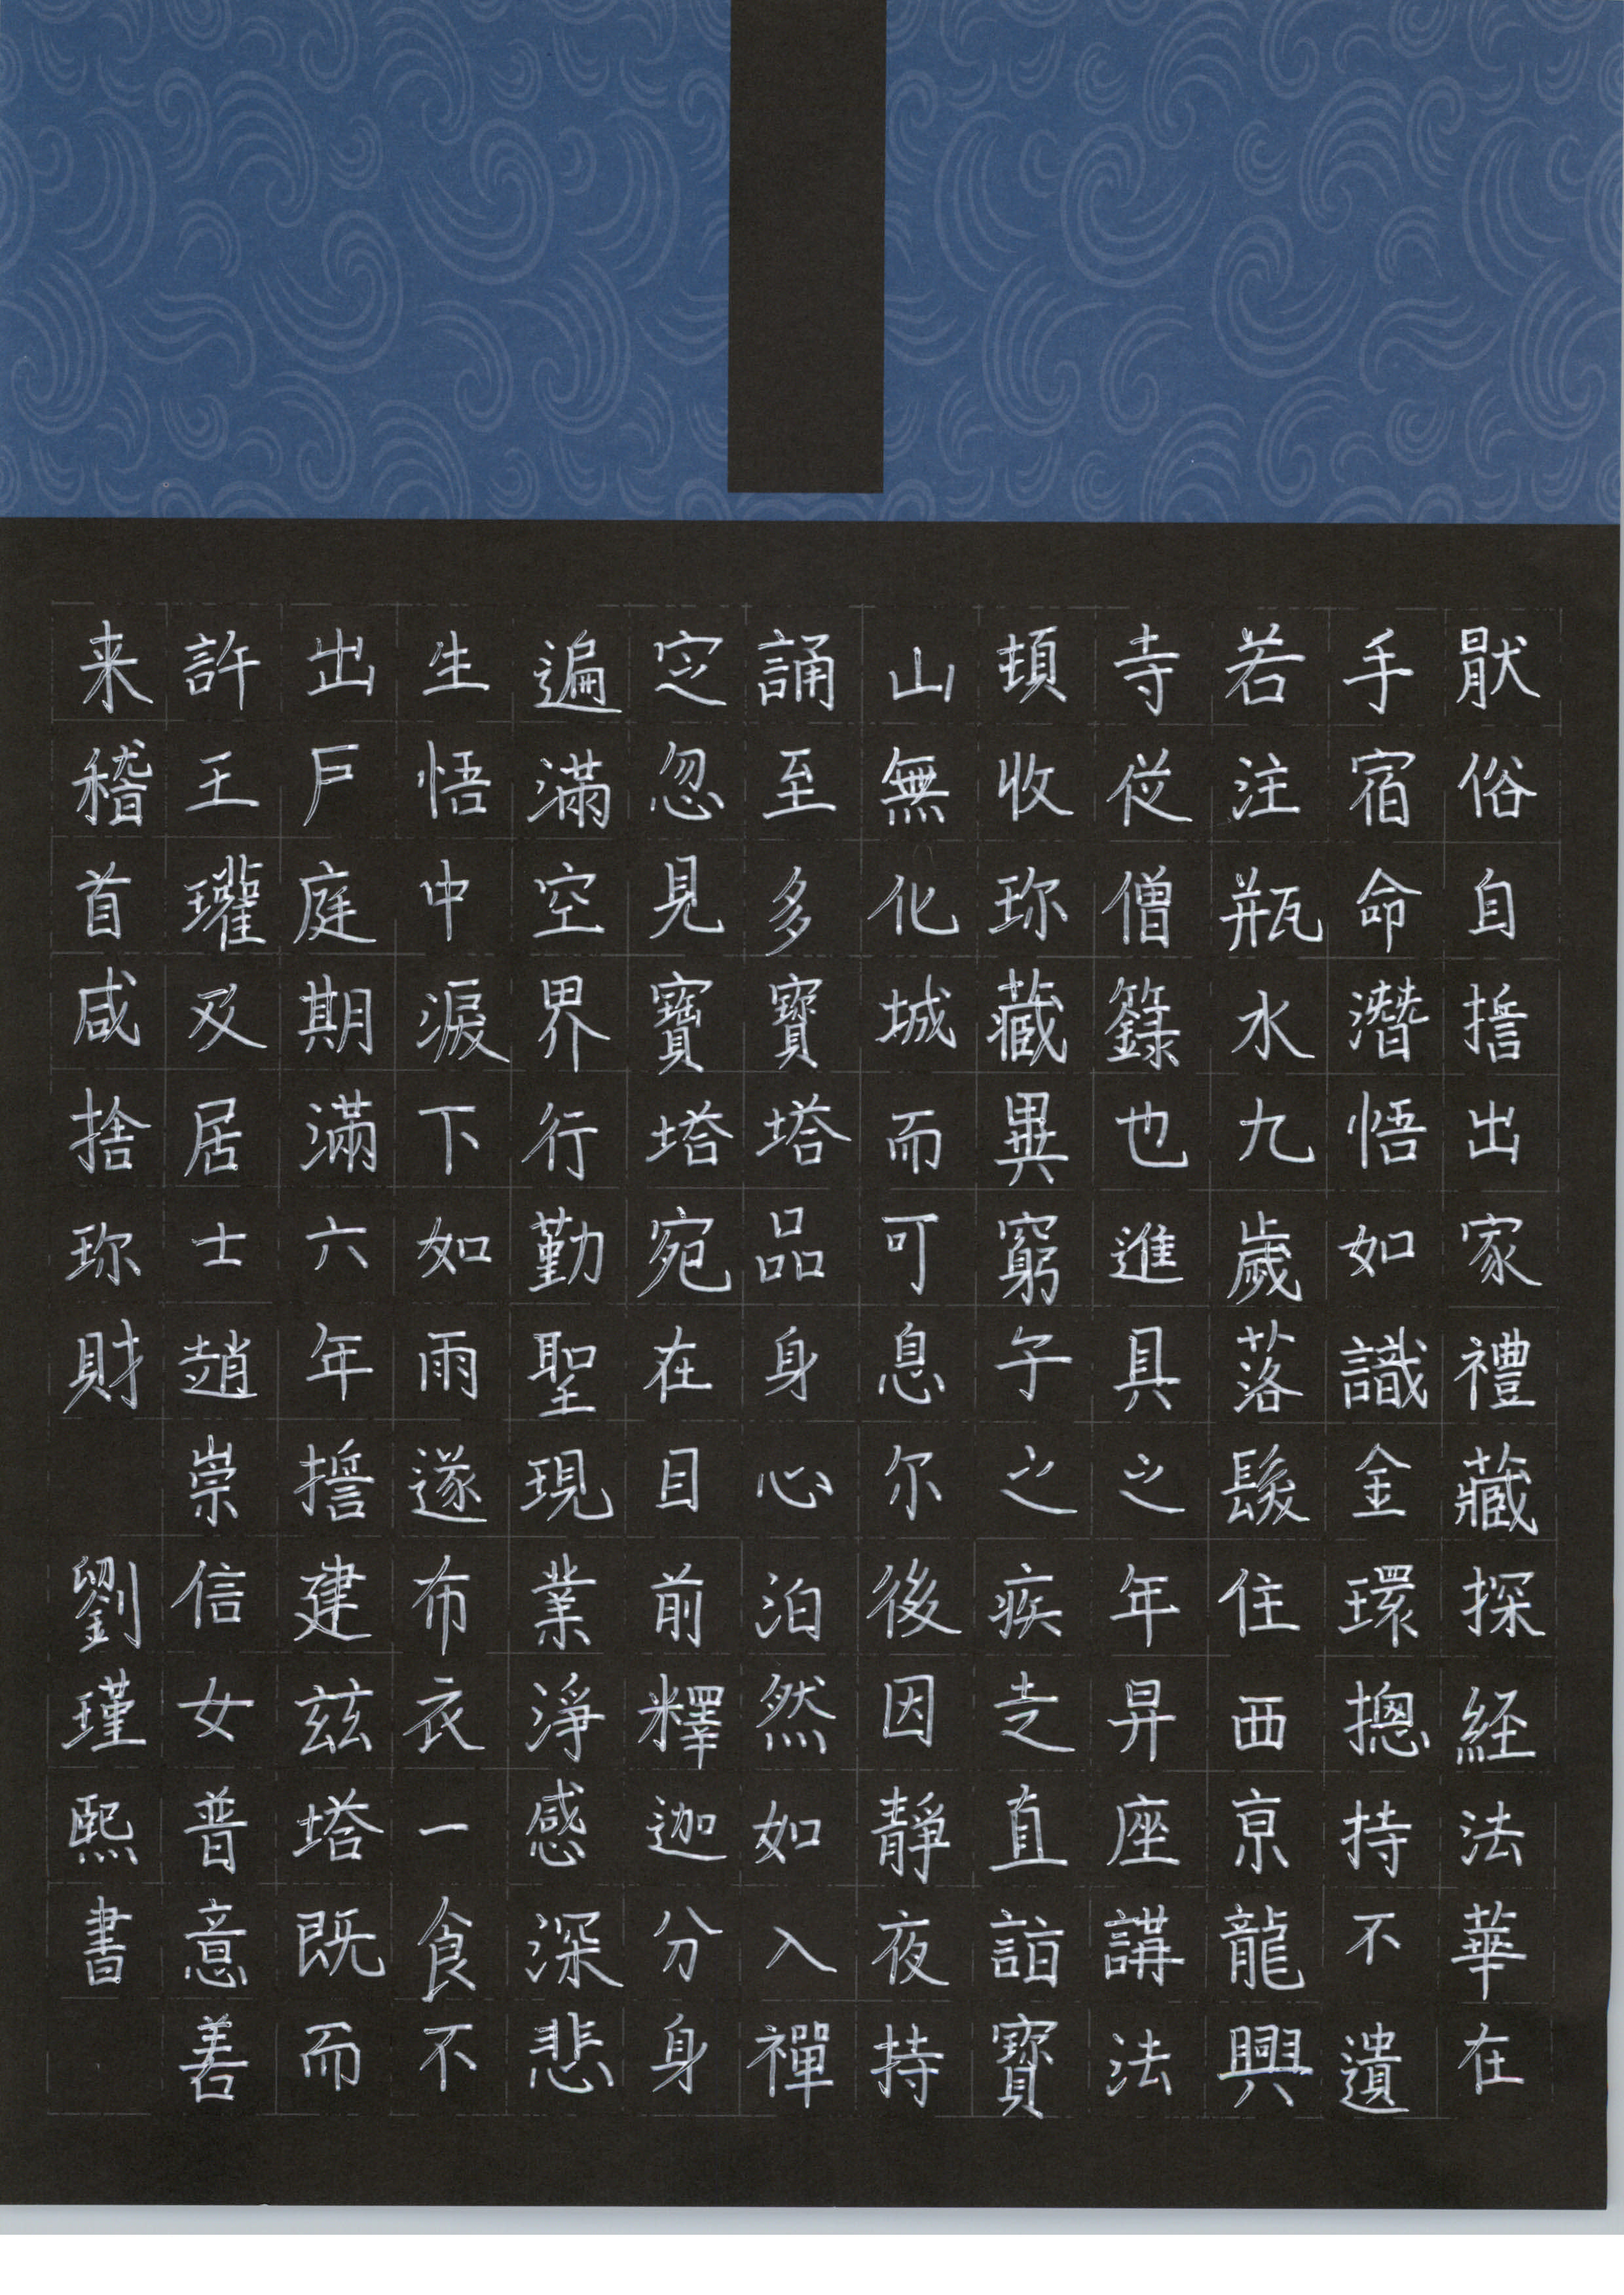 猒俗自誓出家禮藏探経法華在
手宿命潛悟如識金環揔持不遺
若注瓶水九歲落髮住西京龍興
寺從僧籙也進具之年昇座講法
頓收珎藏異窮子之疾走直詣寶
山無化城而可息尔後因靜夜持
誦至多寶塔品身心泊然如入禪
定忽見寶塔宛在目前釋迦分身
遍滿空界行勤聖現業淨感深悲
生悟中淚下如雨遂布衣一食不
出戶庭期滿六年誓建茲塔既而
許王瓘及居士趙崇信女普意善
来稽首咸捨珎財 劉瑾熙書